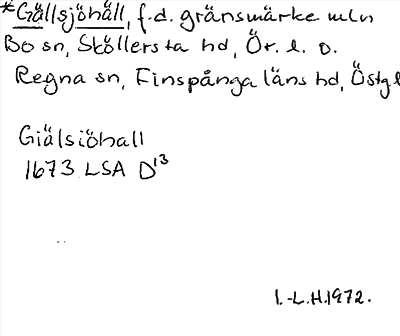 *Gällsjöhäll, f.d. gränsmärke mln
Bo sn, Sköllersta hd, Ör. l. o.
Regna sn, Finspånga läns hd, Östgl
Giälsiöhall
1673 LSA D13
I.-L.H.1972.